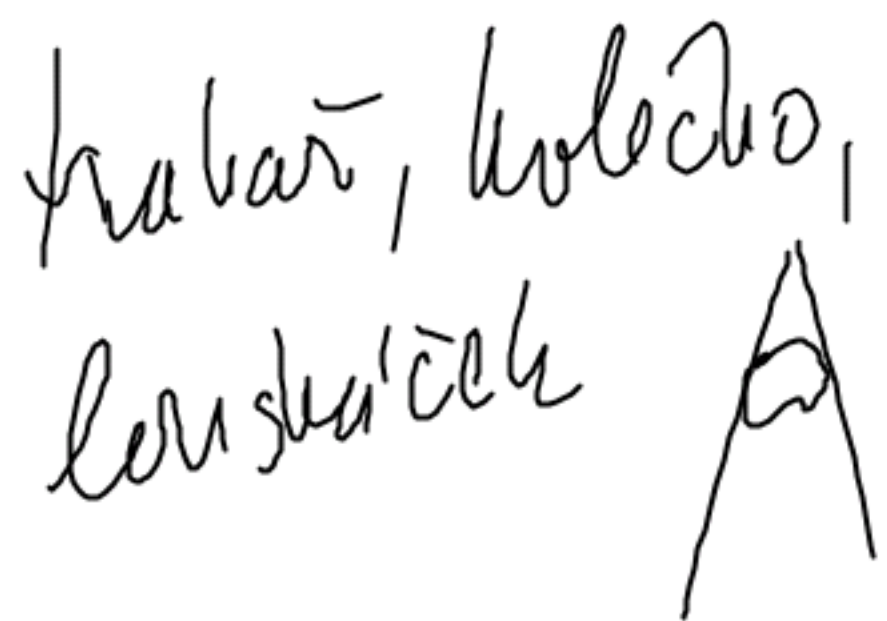 trakař, kolečko,
louskáček